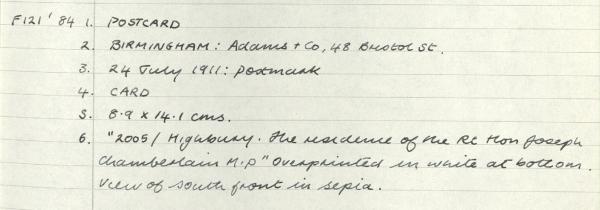 F121'84 1. POSTCARD
2. BIRMINGHAM: Adams + Co, 48 Bristol St.
3. 24 July 1911: postmark
4. CARD
5. 8.9 x 14.1 cms.
6. "2005/ Highbury. The residence of the Rt Hon Joseph
Chamberlain M.P" Overprinted in white at bottom.
View of south front in sepia.